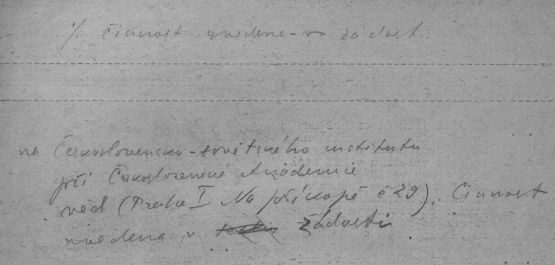 činnost uvedena v žádosti.
na Československo-sovětského institutu
při Československé Akademie
věd (Praha I Na příkopě č 29). Činnost
uvedena v žádosti